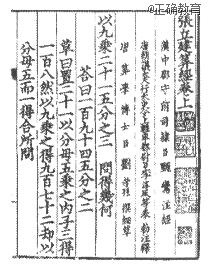 @正确教育
張立建算經卷上
漢中郡守前司隸臣甄鸞注經
唐朝議大夫行太史令上輕車都尉臣李淳風等奉勑注釋
唐算學博士臣劉孝孫撰細草
以九乘二十一五分之三問得幾何
荅曰一百九十四五分之二
草曰置二十一以分母五乘之內子三得
一百八然以九乘之得九百七十二却以
分母五而一得合所問